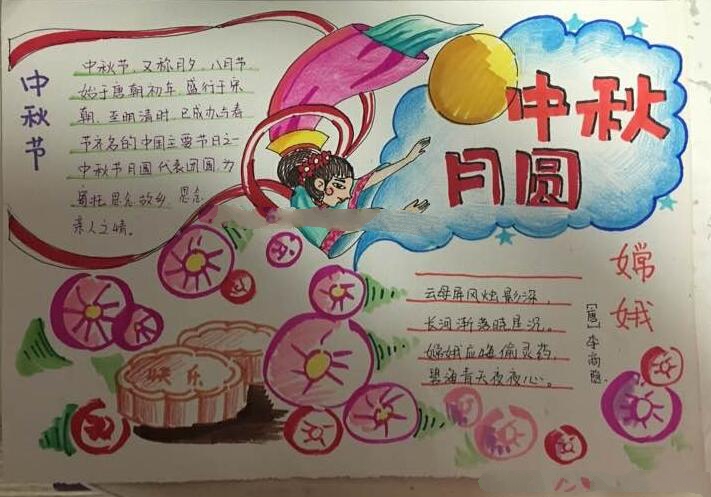 中秋节
中秋节，又称月夕、八月节，
始于唐朝初年，盛行于宋
朝，至明清时，已成为与春
节齐名的中国主要节日之一
中秋节月圆代表团圆，为
寄托思念故乡，思念
亲人之情。
中秋
月圆
嫦娥
[唐] 李商隐
云母屏风烛影深，
长河渐落晓星沉。
嫦娥应悔偷灵药，
碧海青天夜夜心。
快乐